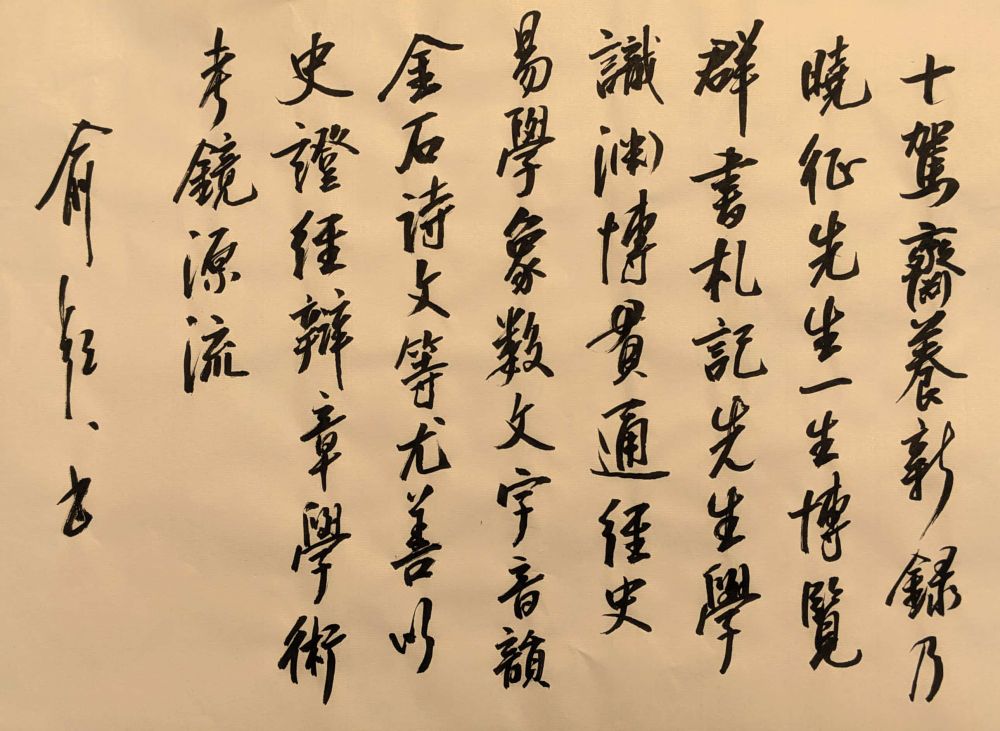 十駕齋養新録乃
曉征先生一生博覽
群書札記先生學
識渊博貫通經史
易學象数文字音韻
金石诗文等尤善以
史證經辯章學術
考鏡源流
俞 书